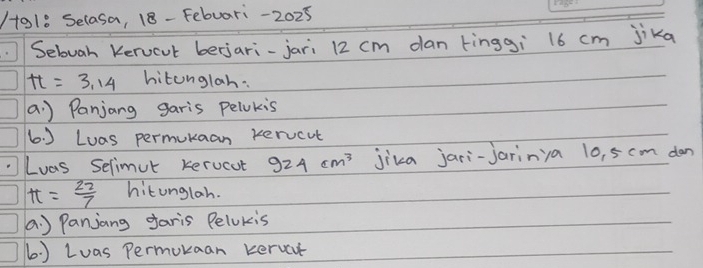 /tgl: Selasa, 18 - Febuari - 2025
Sebuah kerucut berjari-jari 12 cm dan tinggi 16 cm jika
π = 3,14 hitunglah:
a.) Panjang garis pelukis
b.) Luas permukaan kerucut
Luas Selimut kerucut 924 cm³ jika jari-jarinya 10,5 cm dan
π = 22/7 hitunglah.
a.) Panjang garis Pelukis
b.) Luas Permukaan kerucut